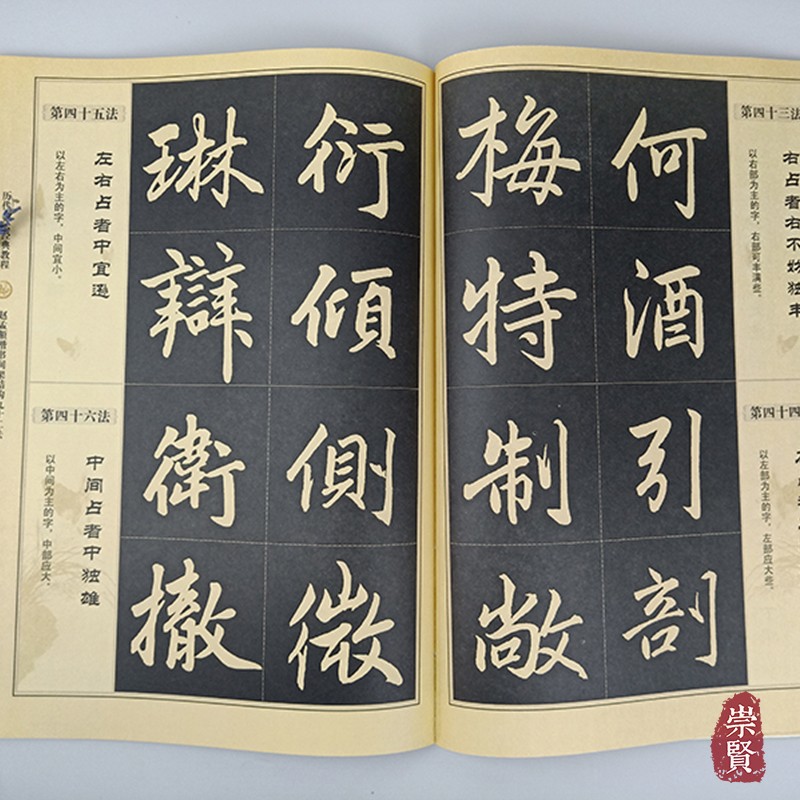 第四十三法
右占者右不妨独丰
以右部为主的字，右部可丰满些。
第四十四
以左部为主的字，左部应大些。
何酒引剖
梅特制敞
衍傾側微
琳辯衛撤
第四十五法
左右占者中宜逊
以左右为主的字，中间宜小。
第四十六法
中间占者中独雄
以中间为主的字，中部应大。
历代
典教程
崇賢